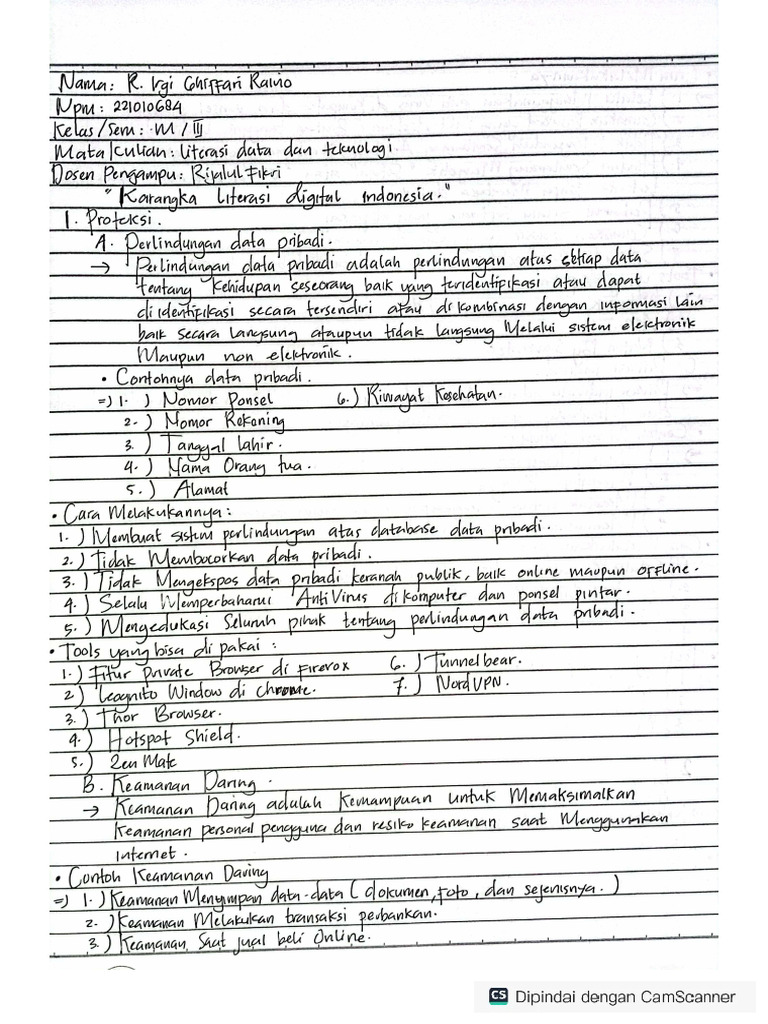 Nama: R. Irgi Ghiffari Raino
Npm: 221010684
Kelas/Sem: M / III
Mata kuliah: Literasi data dan teknologi
Dosen Pengampu: Rijalul Fikri
"Karangka Literasi digital Indonesia."
1. Proteksi.
A. Perlindungan data pribadi.
→ Perlindungan data pribadi adalah perlindungan atas setiap data
tentang kehidupan seseorang baik yang teridentifikasi atau dapat
di identifikasi secara tersendiri atau di kombinasi dengan informasi lain
baik secara langsung ataupun tidak langsung Melalui sistem elektronik
Maupun non elektronik.
• Contohnya data pribadi.
=) 1. ) Nomor Ponsel 6. ) Riwayat Kesehatan.
2. ) Nomor Rekening
3. ) Tanggal lahir.
4. ) Nama Orang tua.
5. ) Alamat
• Cara Melakukannya:
1. ) Membuat sistem perlindungan atas database data pribadi.
2. ) Tidak Membocorkan data pribadi.
3. ) Tidak Mengekspos data pribadi keranah publik, baik online maupun offline.
4. ) Selalu Memperbaharui AntiVirus di komputer dan ponsel pintar.
5. ) Mengedukasi Seluruh pihak tentang perlindungan data pribadi.
• Tools yang bisa di pakai:
1. ) Fitur Private Browser di Firevox 6. ) Tunnelbear.
2) Icognito Window di Chrome. 7. ) NordVPN.
3. ) Thor Browser.
4. ) Hotspot Shield.
5. ) Zen Mate
B. Keamanan Daring.
→ Keamanan Daring adalah Kemampuan untuk Memaksimalkan
keamanan personal pengguna dan resiko keamanan saat Menggunakan
Internet.
• Contoh Keamanan Daring
=) 1. ) Keamanan Menyimpan data-data (dokumen, foto, dan sejenisnya.)
2. ) Keamanan Melakukan transaksi perbankan.
3. ) Keamanan Saat jual beli Online.
CS Dipindai dengan CamScanner